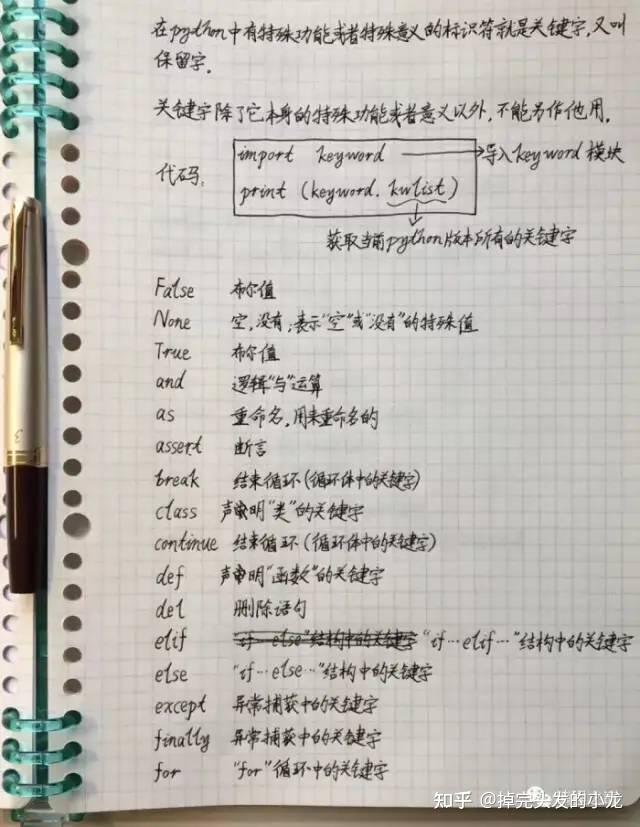 在python中有特殊功能或者特殊意义的标识符就是关键字,又叫
保留字.
关键字除了它本身的特殊功能或者意义以外,不能另作他用.
代码:
import keyword → 导入keyword模块
print (keyword. kwlist)
获取当前python版本所有的关键字
False 布尔值
None 空,没有;表示"空"或"没有"的特殊值
True 布尔值
and 逻辑"与"运算
as 重命名,用来重命名的
assert 断言
break 结束循环(循环体中的关键字)
class 声明"类"的关键字
continue 结束循环(循环体中的关键字)
def 声明"函数"的关键字
del 删除语句
elif "if…else"结构中的关键字 "if…elif…"结构中的关键字
else "if…else…"结构中的关键字
except 异常捕获中的关键字
finally 异常捕获中的关键字
for "for"循环中的关键字
知乎 @掉完头发的小龙